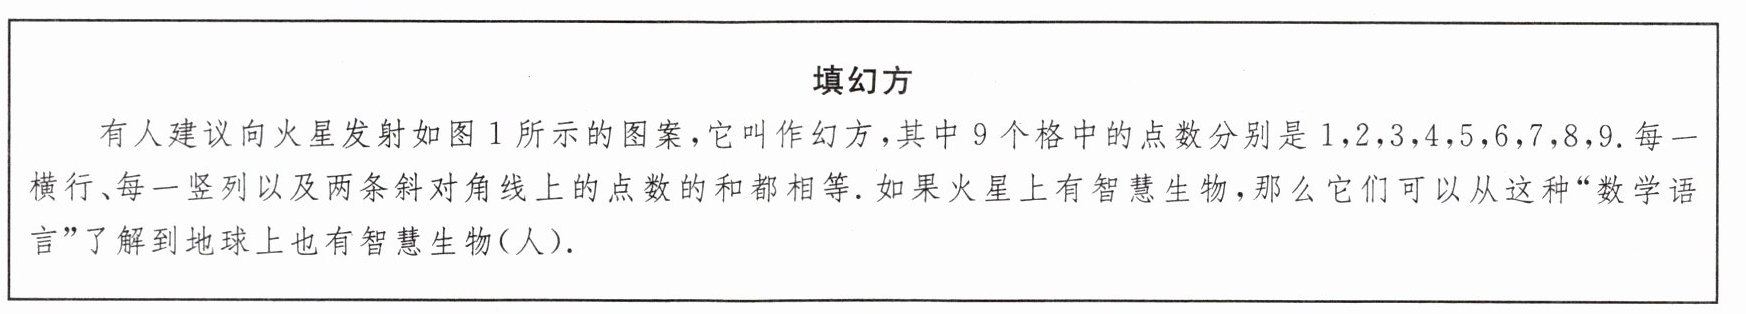 填幻方
有人建议向火星发射如图1所示的图案,它叫作幻方,其中9个格中的点数分别是1,2,3,4,5,6,7,8,9.每一
横行、每一竖列以及两条斜对角线上的点数的和都相等.如果火星上有智慧生物,那么它们可以从这种“数学语
言”了解到地球上也有智慧生物(人).